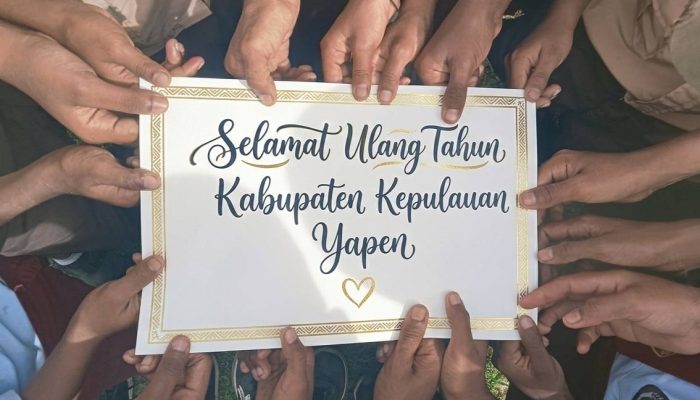 Selamat Ulang Tahun
Kabupaten Kepulauan
Yapen